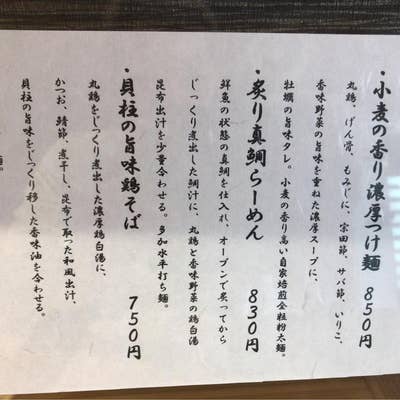 ・小麦の香り濃厚つけ麺 850円
丸鶏、げん骨、もみじに、宗田節、サバ節、いりこ、
香味野菜の旨味を重ねた濃厚スープに、
牡蠣の旨味タレ。小麦の香り高い自家焙煎全粒粉太麺。
・炙り真鯛らーめん 830円
鮮魚の状態の真鯛を仕入れ、オーブンで炙ってから
じっくり煮出した鯛汁に、丸鶏と香味野菜の鶏白湯
昆布出汁を少量合わせる。多加水平打ち麺。
・貝柱の旨味鶏そば 750円
丸鶏をじっくり煮出した濃厚鶏白湯に、
かつお、鯖節、煮干し、昆布で取った和風出汁、
貝柱の旨味をじっくり移した香味油を合わせる。